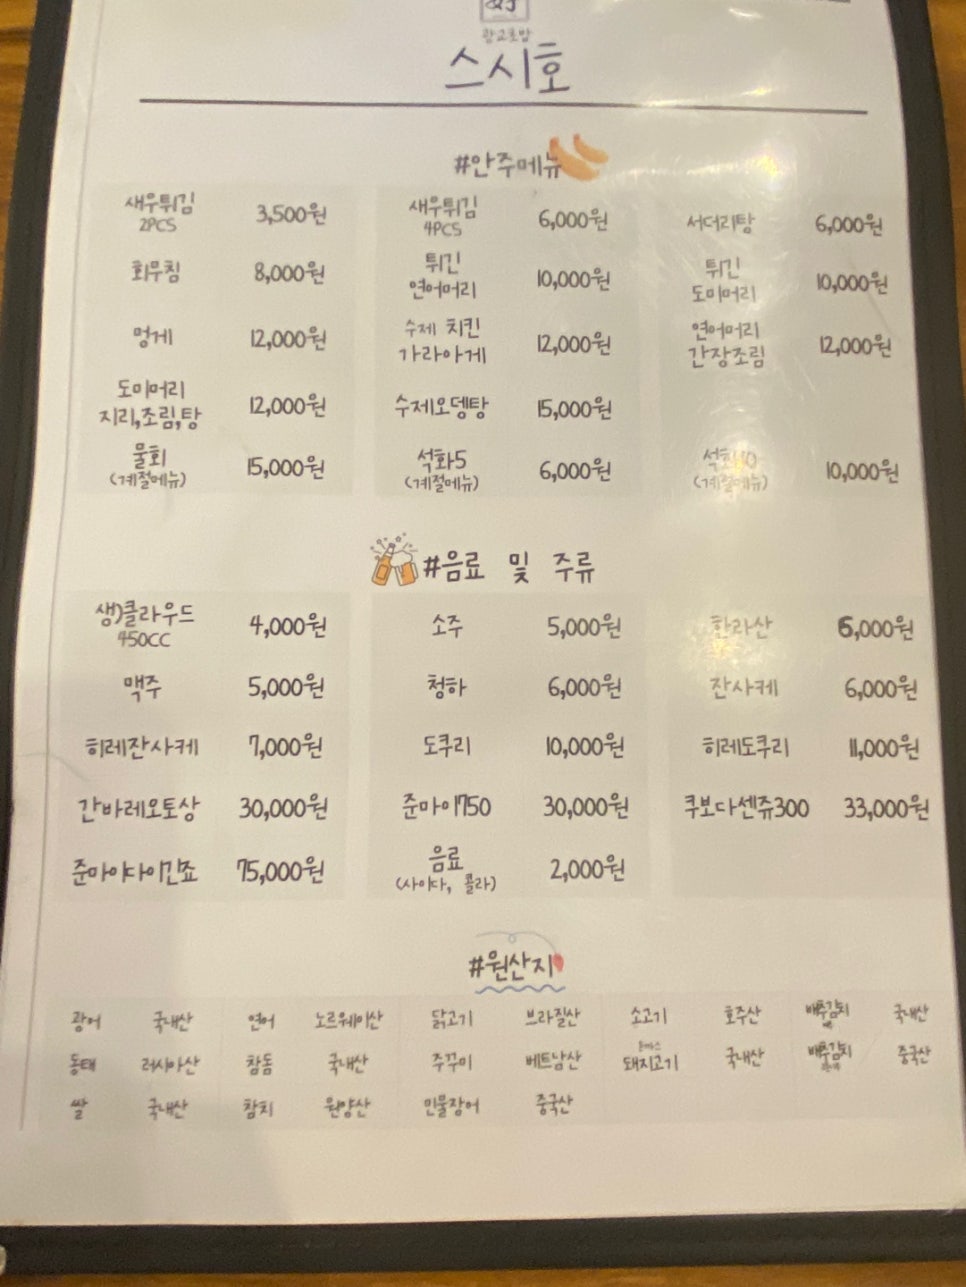 광교호암
스시호
#안주메뉴
새우튀김 3,500원 새우튀김 6,000원 서더리탕 6,000원
2PCS 4PCS
회무침 8,000원 튀긴 10,000원 튀긴 10,000원
연어머리 도미머리
멍게 12,000원 수제 치킨 12,000원 연어머리 12,000원
가라아게 간장조림
도미머리 12,000원 수제오뎅탕 15,000원
지리,조림,탕
물회 15,000원 석화5 6,000원 석화10 10,000원
(계절메뉴) (계절메뉴) (계절메뉴)
#음료 및 주류
생)클라우드 4,000원 소주 5,000원 한라산 6,000원
450CC
맥주 5,000원 청하 6,000원 잔사케 6,000원
히레잔사케 7,000원 도쿠리 10,000원 히레도쿠리 11,000원
간바레오토상 30,000원 준마이750 30,000원 쿠보다센쥬300 33,000원
준마이다이긴죠 75,000원 음료 2,000원
(사이다, 콜라)
#원산지
광어 국내산 연어 노르웨이산 닭고기 브라질산 소고기 호주산 배추김치 국내산
동태 러시아산 참돔 국내산 주꾸미 베트남산 돈까스 돼지고기 국내산 배추김치 중국산
쌀 국내산 참치 원양산 민물장어 중국산